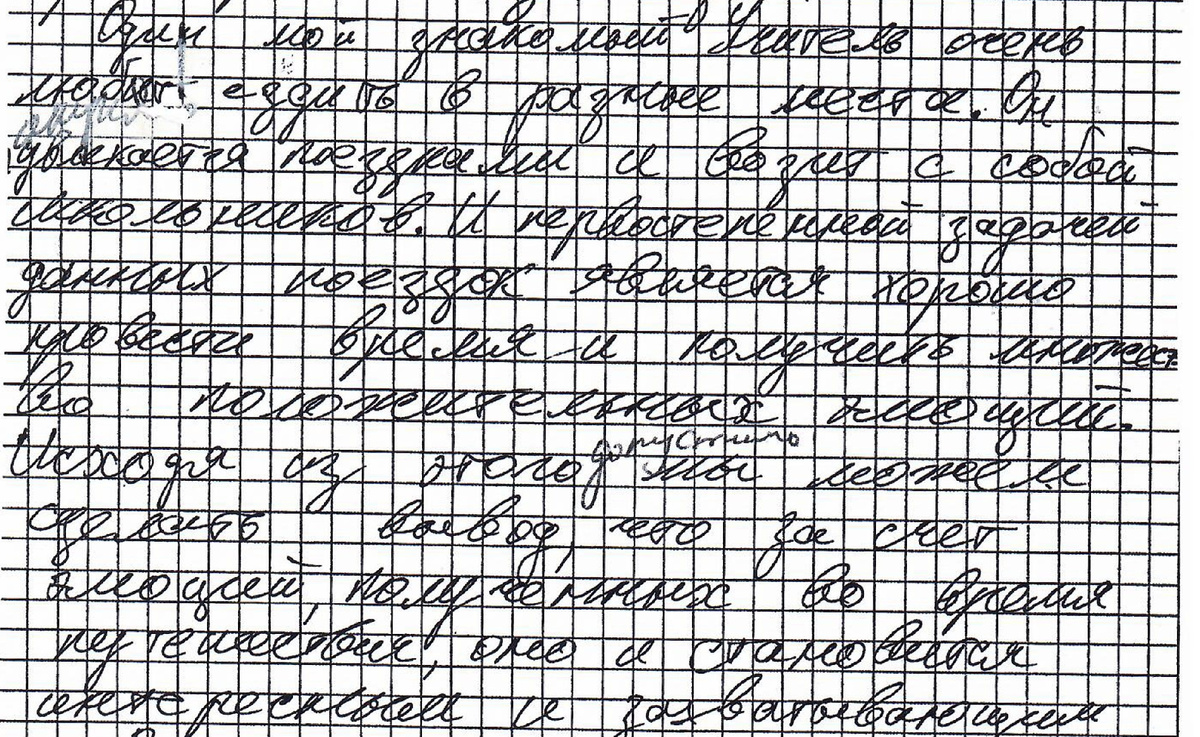 Один мой знакомый учитель очень
любит ездить в разные места. Он
увлекается поездками и возит с собой
школьников. И первостепенной задачей
данных поездок является хорошо
провести время и получить множест
во положительных эмоций.
допустимо
Исходя из этого мы можем
сделать вывод, что за счет
эмоций, полученных во время
путешествия, оно и становится
интересным и захватывающим